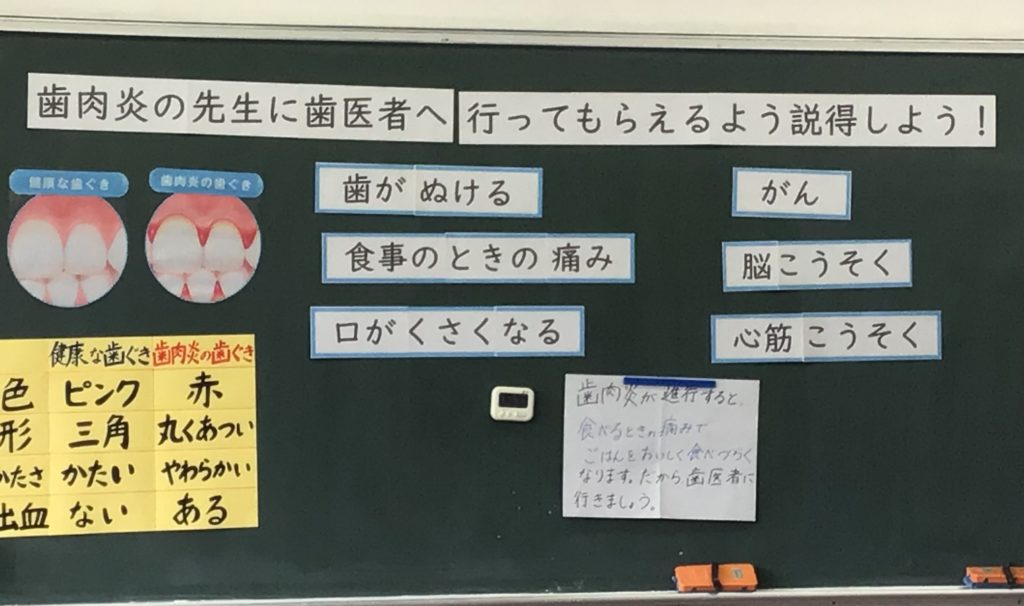 歯肉炎の先生に歯医者へ行ってもらえるよう説得しよう!
健康な歯ぐき
歯肉炎の歯ぐき
歯がぬける
食事のときの痛み
口がくさくなる
がん
脳こうそく
心筋こうそく
健康な歯ぐき 歯肉炎の歯ぐき
色 ピンク 赤
形 三角 丸くあつい
かたさ かたい やわらかい
出血 ない ある
歯肉炎が進行すると、
食べるときの痛みで
ごはんをおいしく食べづらく
なります。だから、歯医者に
行きましょう。